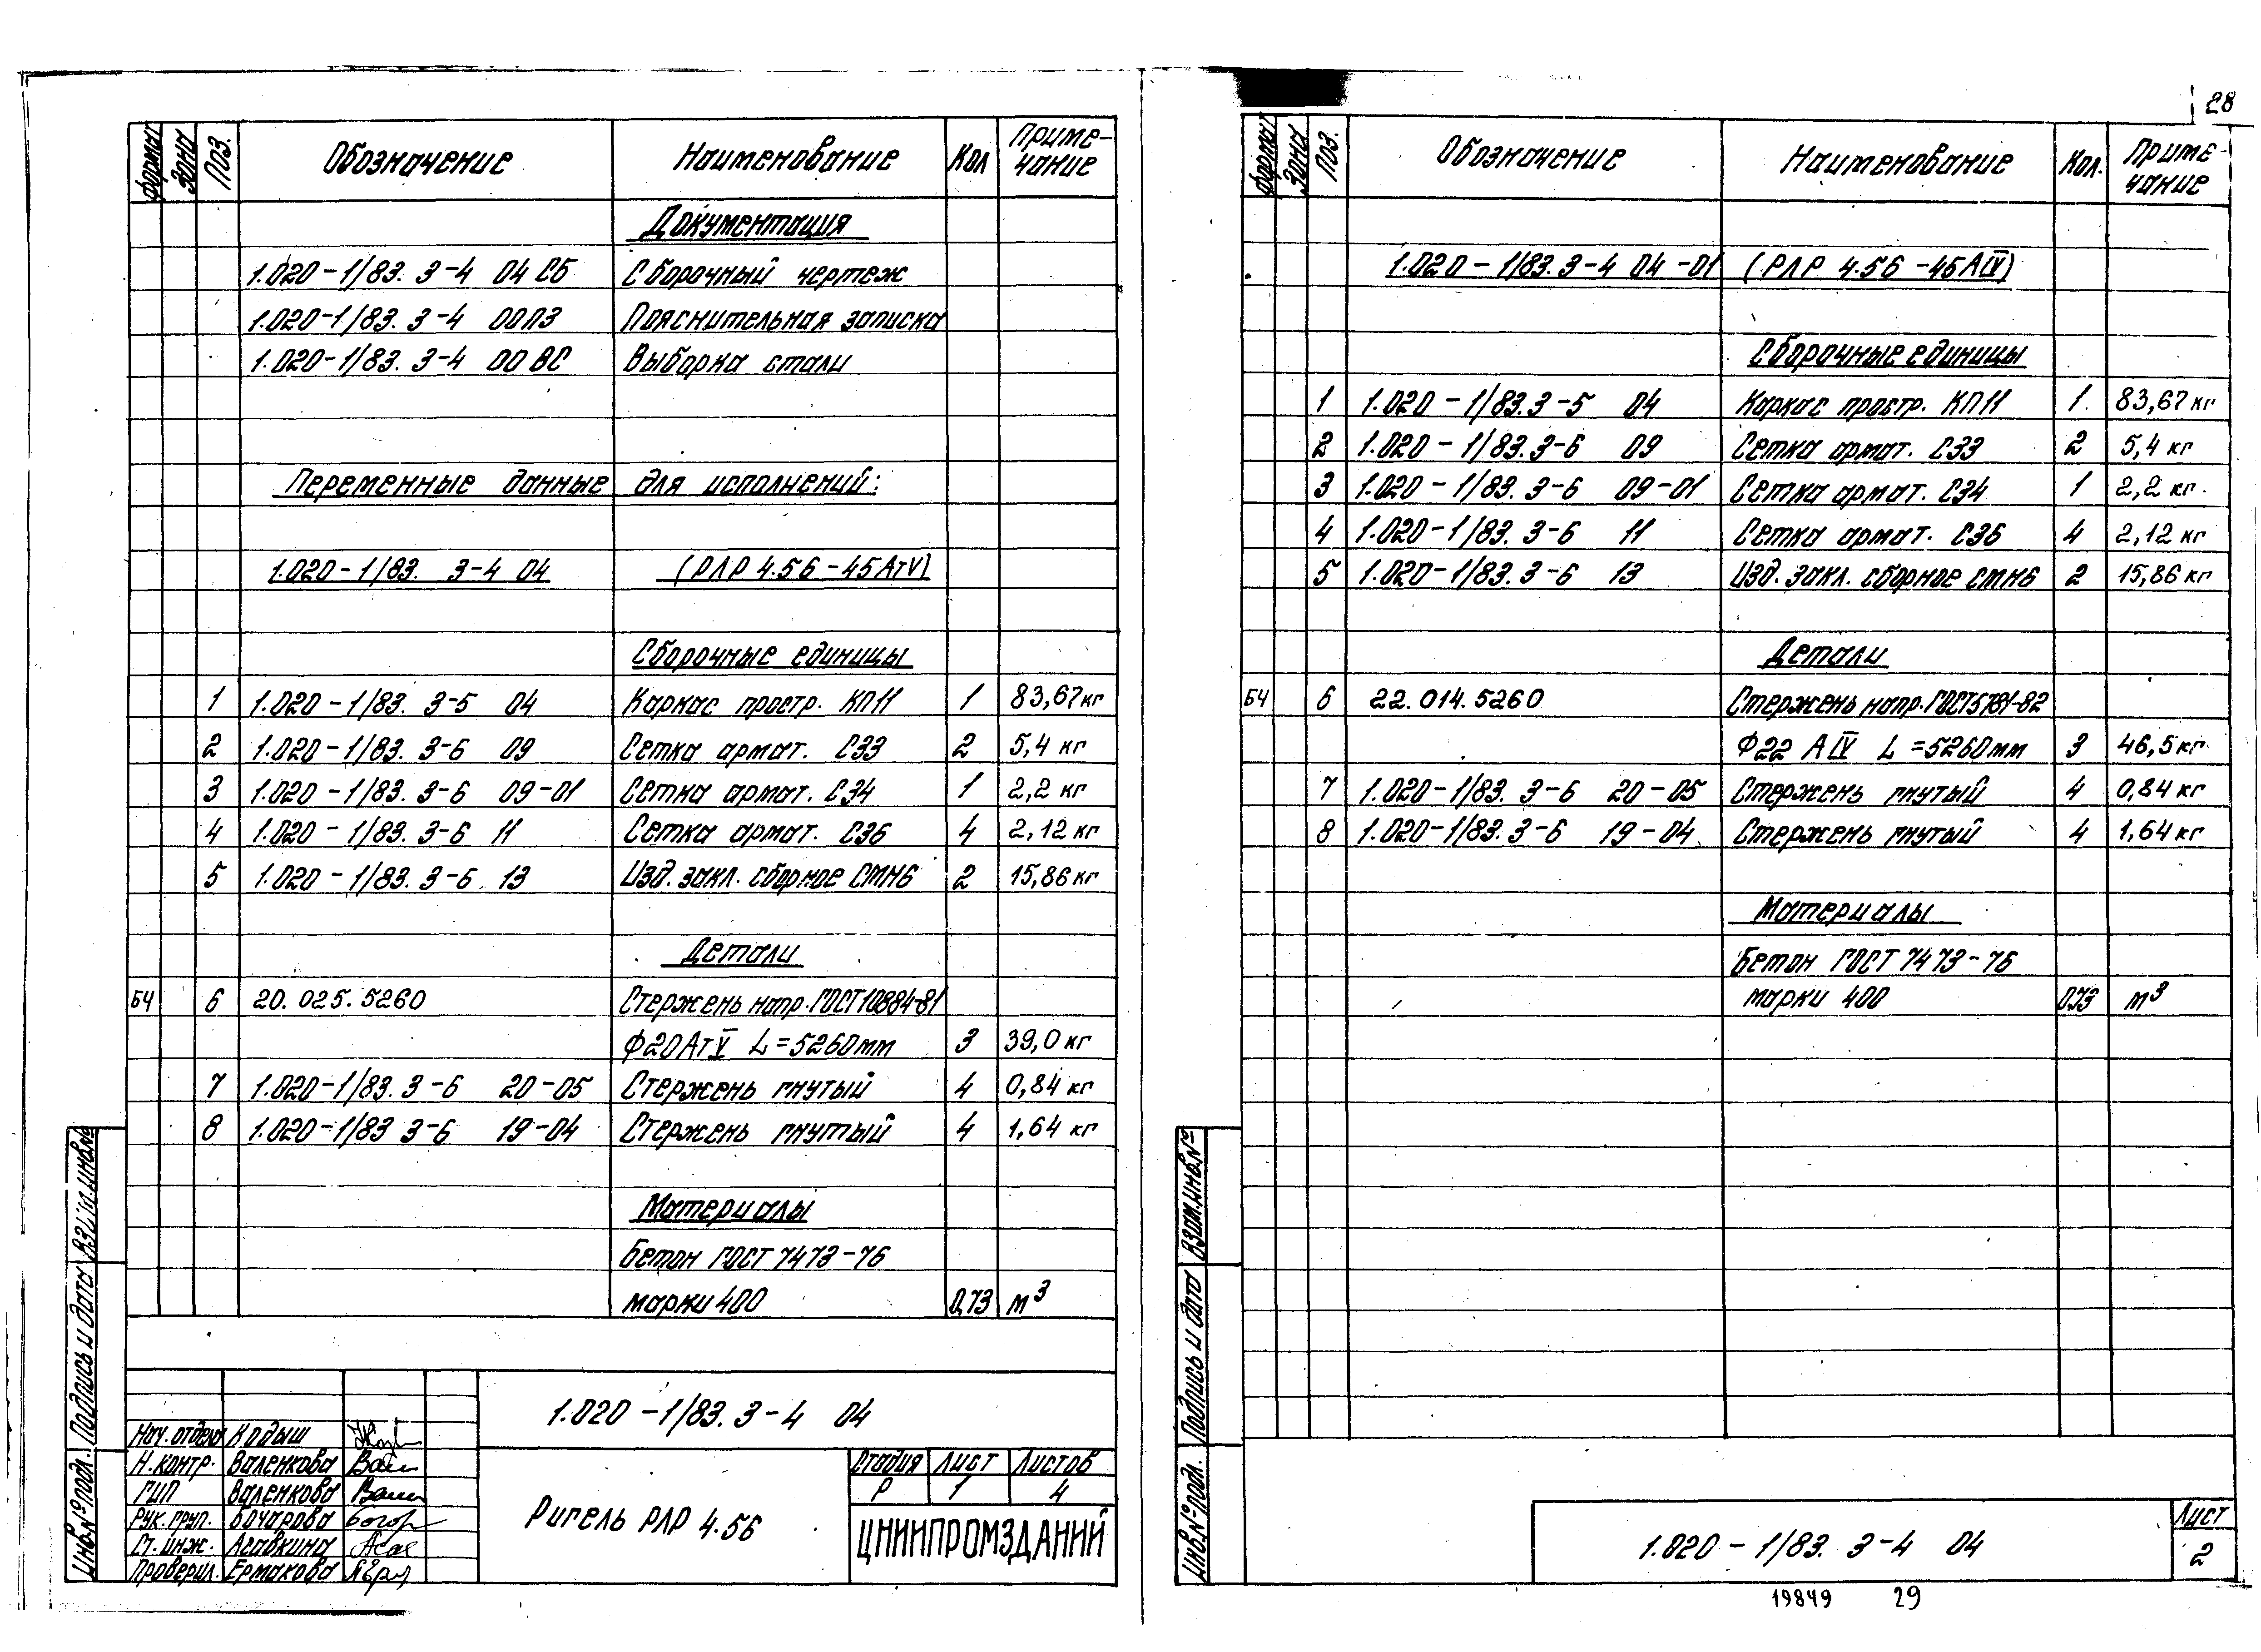 28
Формат Зона Поз. Обозначение Наименование Кол Приме-чание
Документация
1.020-1/83. 3-4 04 СБ Сборочный чертеж
1.020-1/83. 3-4 00ПЗ Пояснительная записка
1.020-1/83. 3-4 00 ВС Выборка стали
Переменные данные для исполнений:
1.020-1/83. 3-4 04 (РЛР 4.56-45АтV)
Сборочные единицы
1 1.020-1/83. 3-5 04 Каркас простр. КП11 1 83,67кг
2 1.020-1/83. 3-6 09 Сетка армат. С33 2 5,4 кг
3 1.020-1/83. 3-6 09-01 Сетка армат. С34 1 2,2 кг
4 1.020-1/83. 3-6 11 Сетка армат. С36 4 2,12 кг
5 1.020-1/83. 3-6 13 Изд. закл. сборное СМН6 2 15,86кг
Детали
БЧ 6 20.025.5260 Стержень напр. ГОСТ10884-81
Ф20АтV L=5260мм 3 39,0 кг
7 1.020-1/83. 3-6 20-05 Стержень гнутый 4 0,84 кг
8 1.020-1/83 3-6 19-04 Стержень гнутый 4 1,64 кг
Материалы
Бетон ГОСТ 7473-76
марки 400 0,73 м³
1.020-1/83. 3-4 04
Нач. отдела Кодыш
Н. контр. Валенкова
ГИП Валенкова
Рук. груп. Бочарова
Ст. инж. Асавкина
Проверил. Ермакова
Ригель РЛР 4.56
Стадия Лист Листов
Р 1 4
ЦНИИПРОМЗДАНИЙ
Инв. № подл. Подпись и дата Взам. инв. №
Формат Зона Поз. Обозначение Наименование Кол. Приме-чание
1.020-1/83. 3-4 04-01 (РЛР 4.56-45АIV)
Сборочные единицы
1 1.020-1/83. 3-5 04 Каркас простр. КП11 1 83,67кг
2 1.020-1/83. 3-6 09 Сетка армат. С33 2 5,4 кг
3 1.020-1/83. 3-6 09-01 Сетка армат. С34 1 2,2 кг.
4 1.020-1/83. 3-6 11 Сетка армат. С36 4 2,12 кг
5 1.020-1/83. 3-6 13 Изд. закл. сборное СМН6 2 15,86 кг
Детали
БЧ 6 22.014.5260 Стержень напр. ГОСТ5781-82
Ф22 АIV L=5260мм 3 46,5кг
7 1.020-1/83. 3-6 20-05 Стержень гнутый 4 0,84 кг
8 1.020-1/83. 3-6 19-04 Стержень гнутый 4 1,64 кг
Материалы
Бетон ГОСТ 7473-76
марки 400 0,73 м³
Инв. № подл. Подпись и дата Взам. инв. №
1.020-1/83. 3-4 04
Лист
2
19849 29